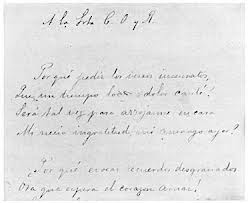 A la Srta C. O. y R.
Por qué pedir los versos insensatos,
Que un tiempo loco de dolor canté?
Será tal vez para arrojarme en cara
Mi necia ingratitud, mi amargo ayer?
¿Por qué evocar recuerdos desgraciados
Ora que espera el corazon amar,